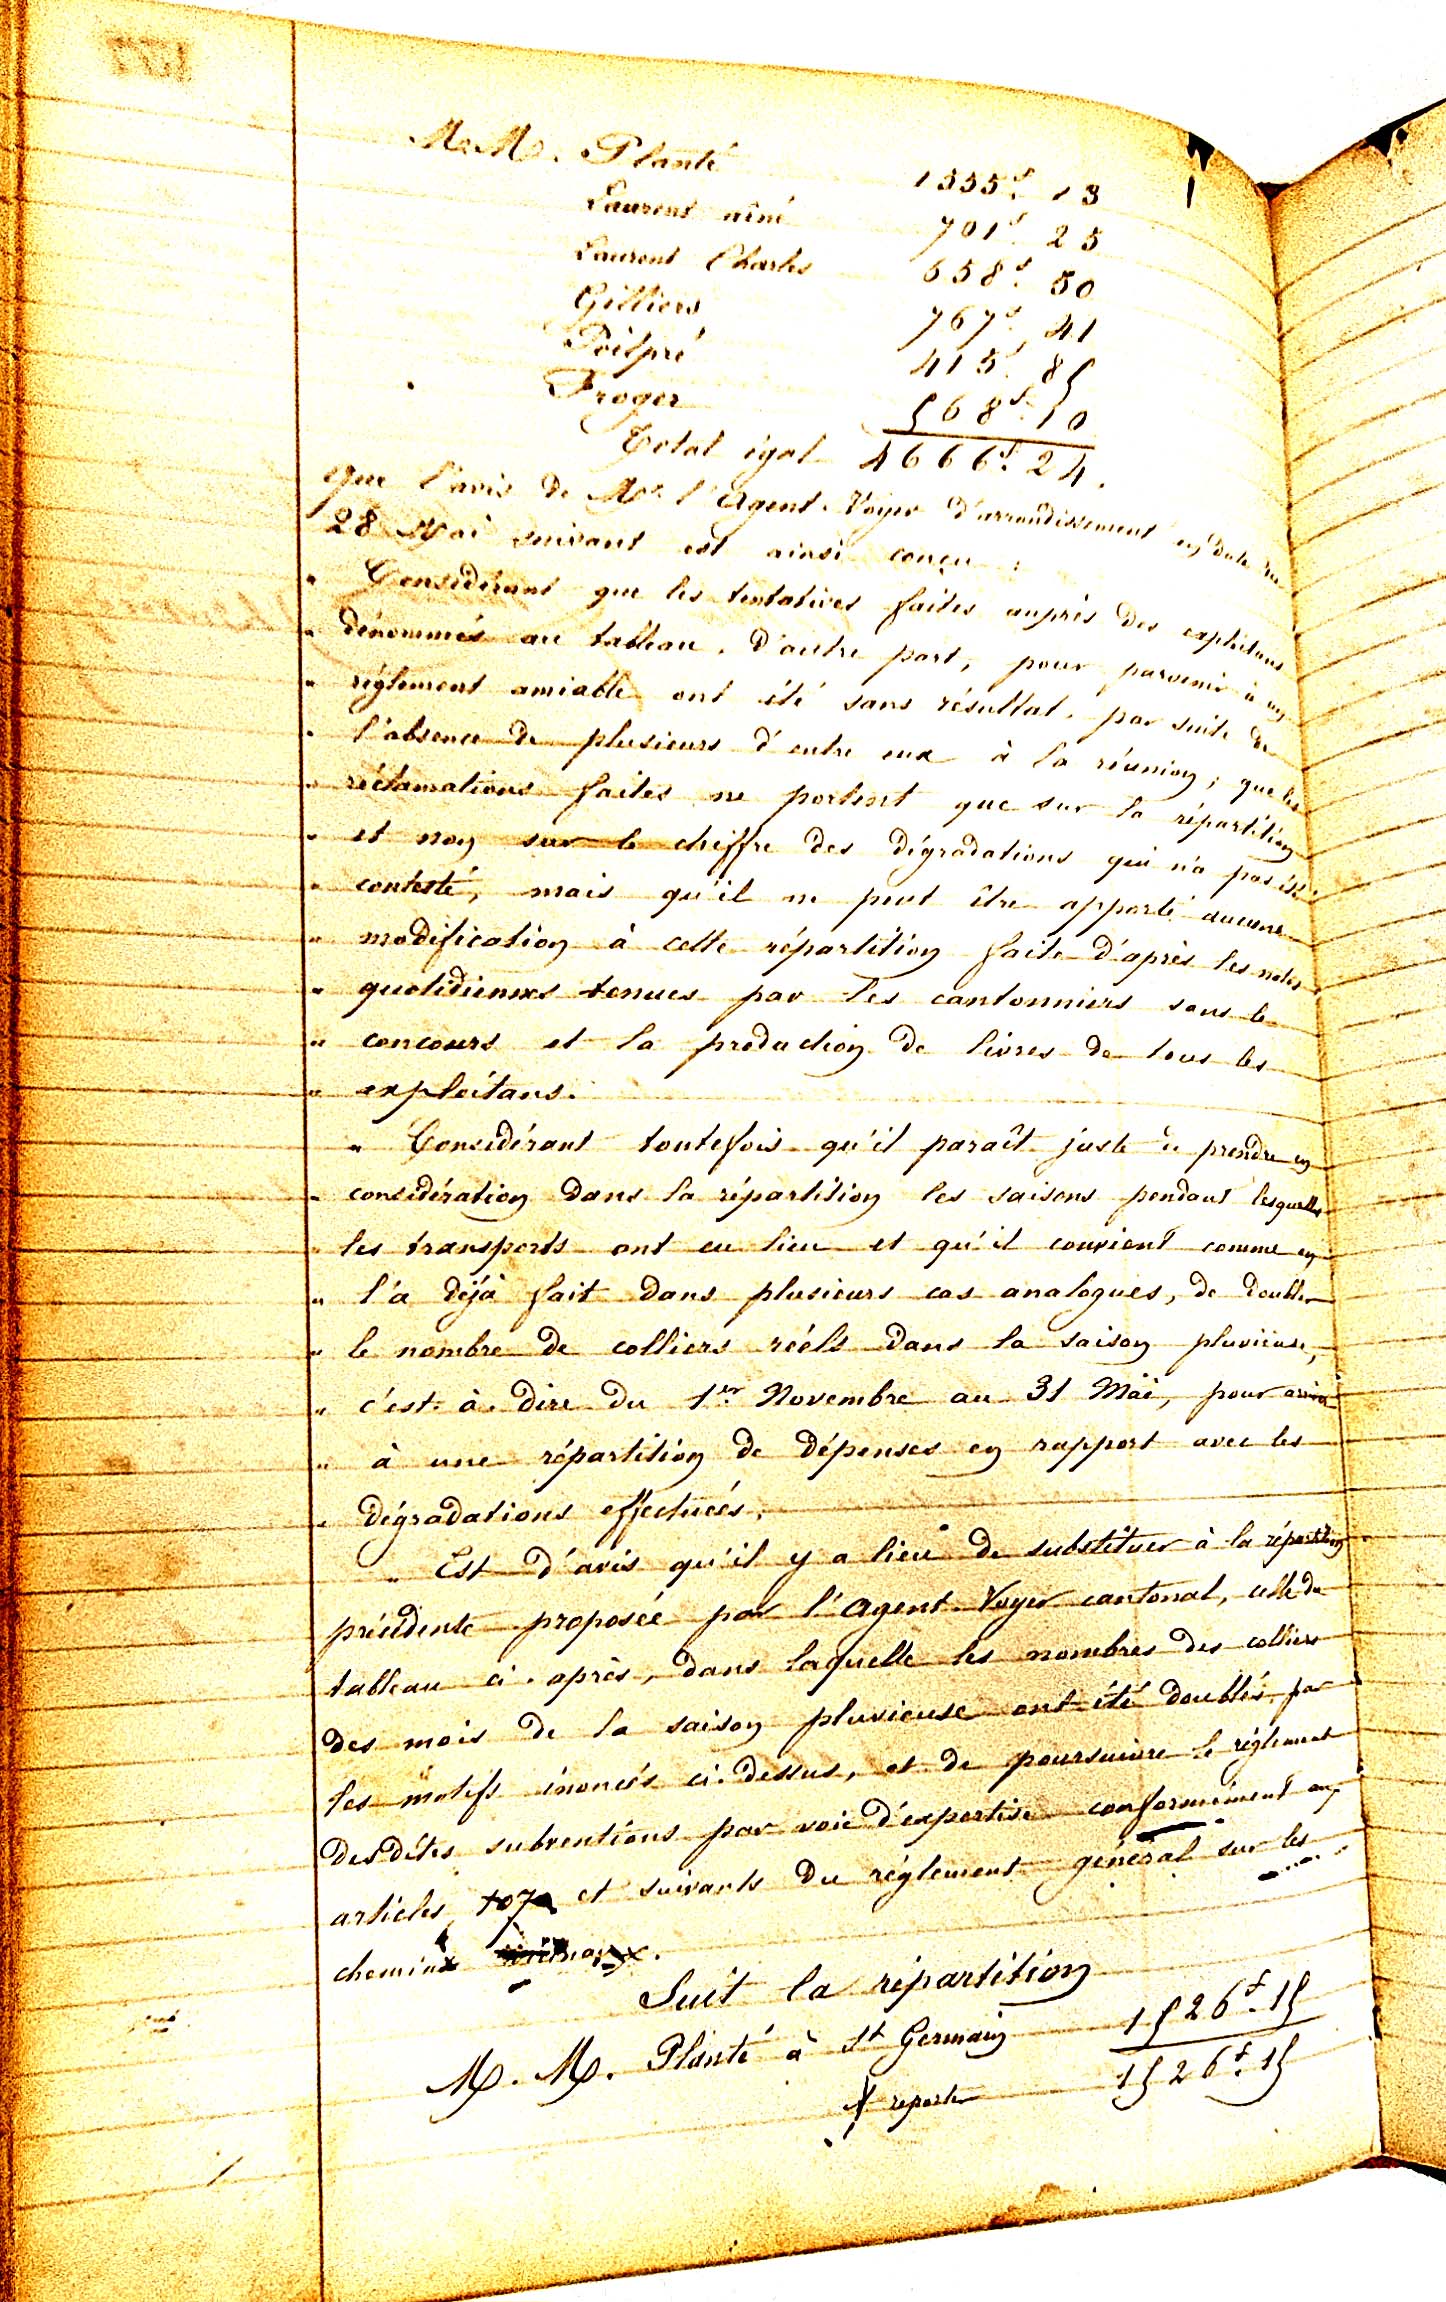 M.M. Planté 1555f. 13
Laurent aîné 701f. 25
Laurent Charles 658f. 50
Gilliers 767f. 41
Poilpré 415f. 85
Froger 568f. 10
Total égal 4666f. 24.
que l'avis de Mr. l'Agent-Voyer d'arrondissement en date du
28 Mai suivant est ainsi conçu :
" Considérant que les tentatives faites auprès des exploitans
" dénommés au tableau, d'autre part, pour parvenir à un
" réglement amiable ont été sans résultat, par suite de
" l'absence de plusieurs d'entre eux à la réunion; que les
" réclamations faites ne portent que sur la répartition
" et non sur le chiffre des dégradations qui n'a pas été
" contesté, mais qu'il ne peut être apporté aucune
" modification à cette répartition faite d'après les notes
" quotidiennes tenues par les cantonniers sans le
" concours et la production de livres de tous les
" exploitans.
" Considérant toutefois qu'il paraît juste de prendre en
" considération dans la répartition les saisons pendant lesquelles
" les transports ont eu lieu et qu'il convient comme on
" l'a déjà fait dans plusieurs cas analogues, de doubler
" le nombre de colliers réels dans la saison pluvieuse,
" c'est-à-dire du 1er Novembre au 31 Mai, pour arriver
" à une répartition de dépenses en rapport avec les
" dégradations effectuées.
" Est d'avis qu'il y a lieu de substituer à la répartition
précédente proposée par l'agent-Voyer cantonal, celle du
tableau ci-après, dans laquelle les nombres des colliers
des mois de la saison pluvieuse ont été doublés par
les motifs énoncés ci-dessus, et de poursuivre le réglement
desdites subventions par voie d'expertise conformément aux
articles 107 et suivants du réglement général sur les
chemins vicinaux.
Suit la répartition
M.M. Planté à St Germain 1526f. 15
A reporter 1526f. 15